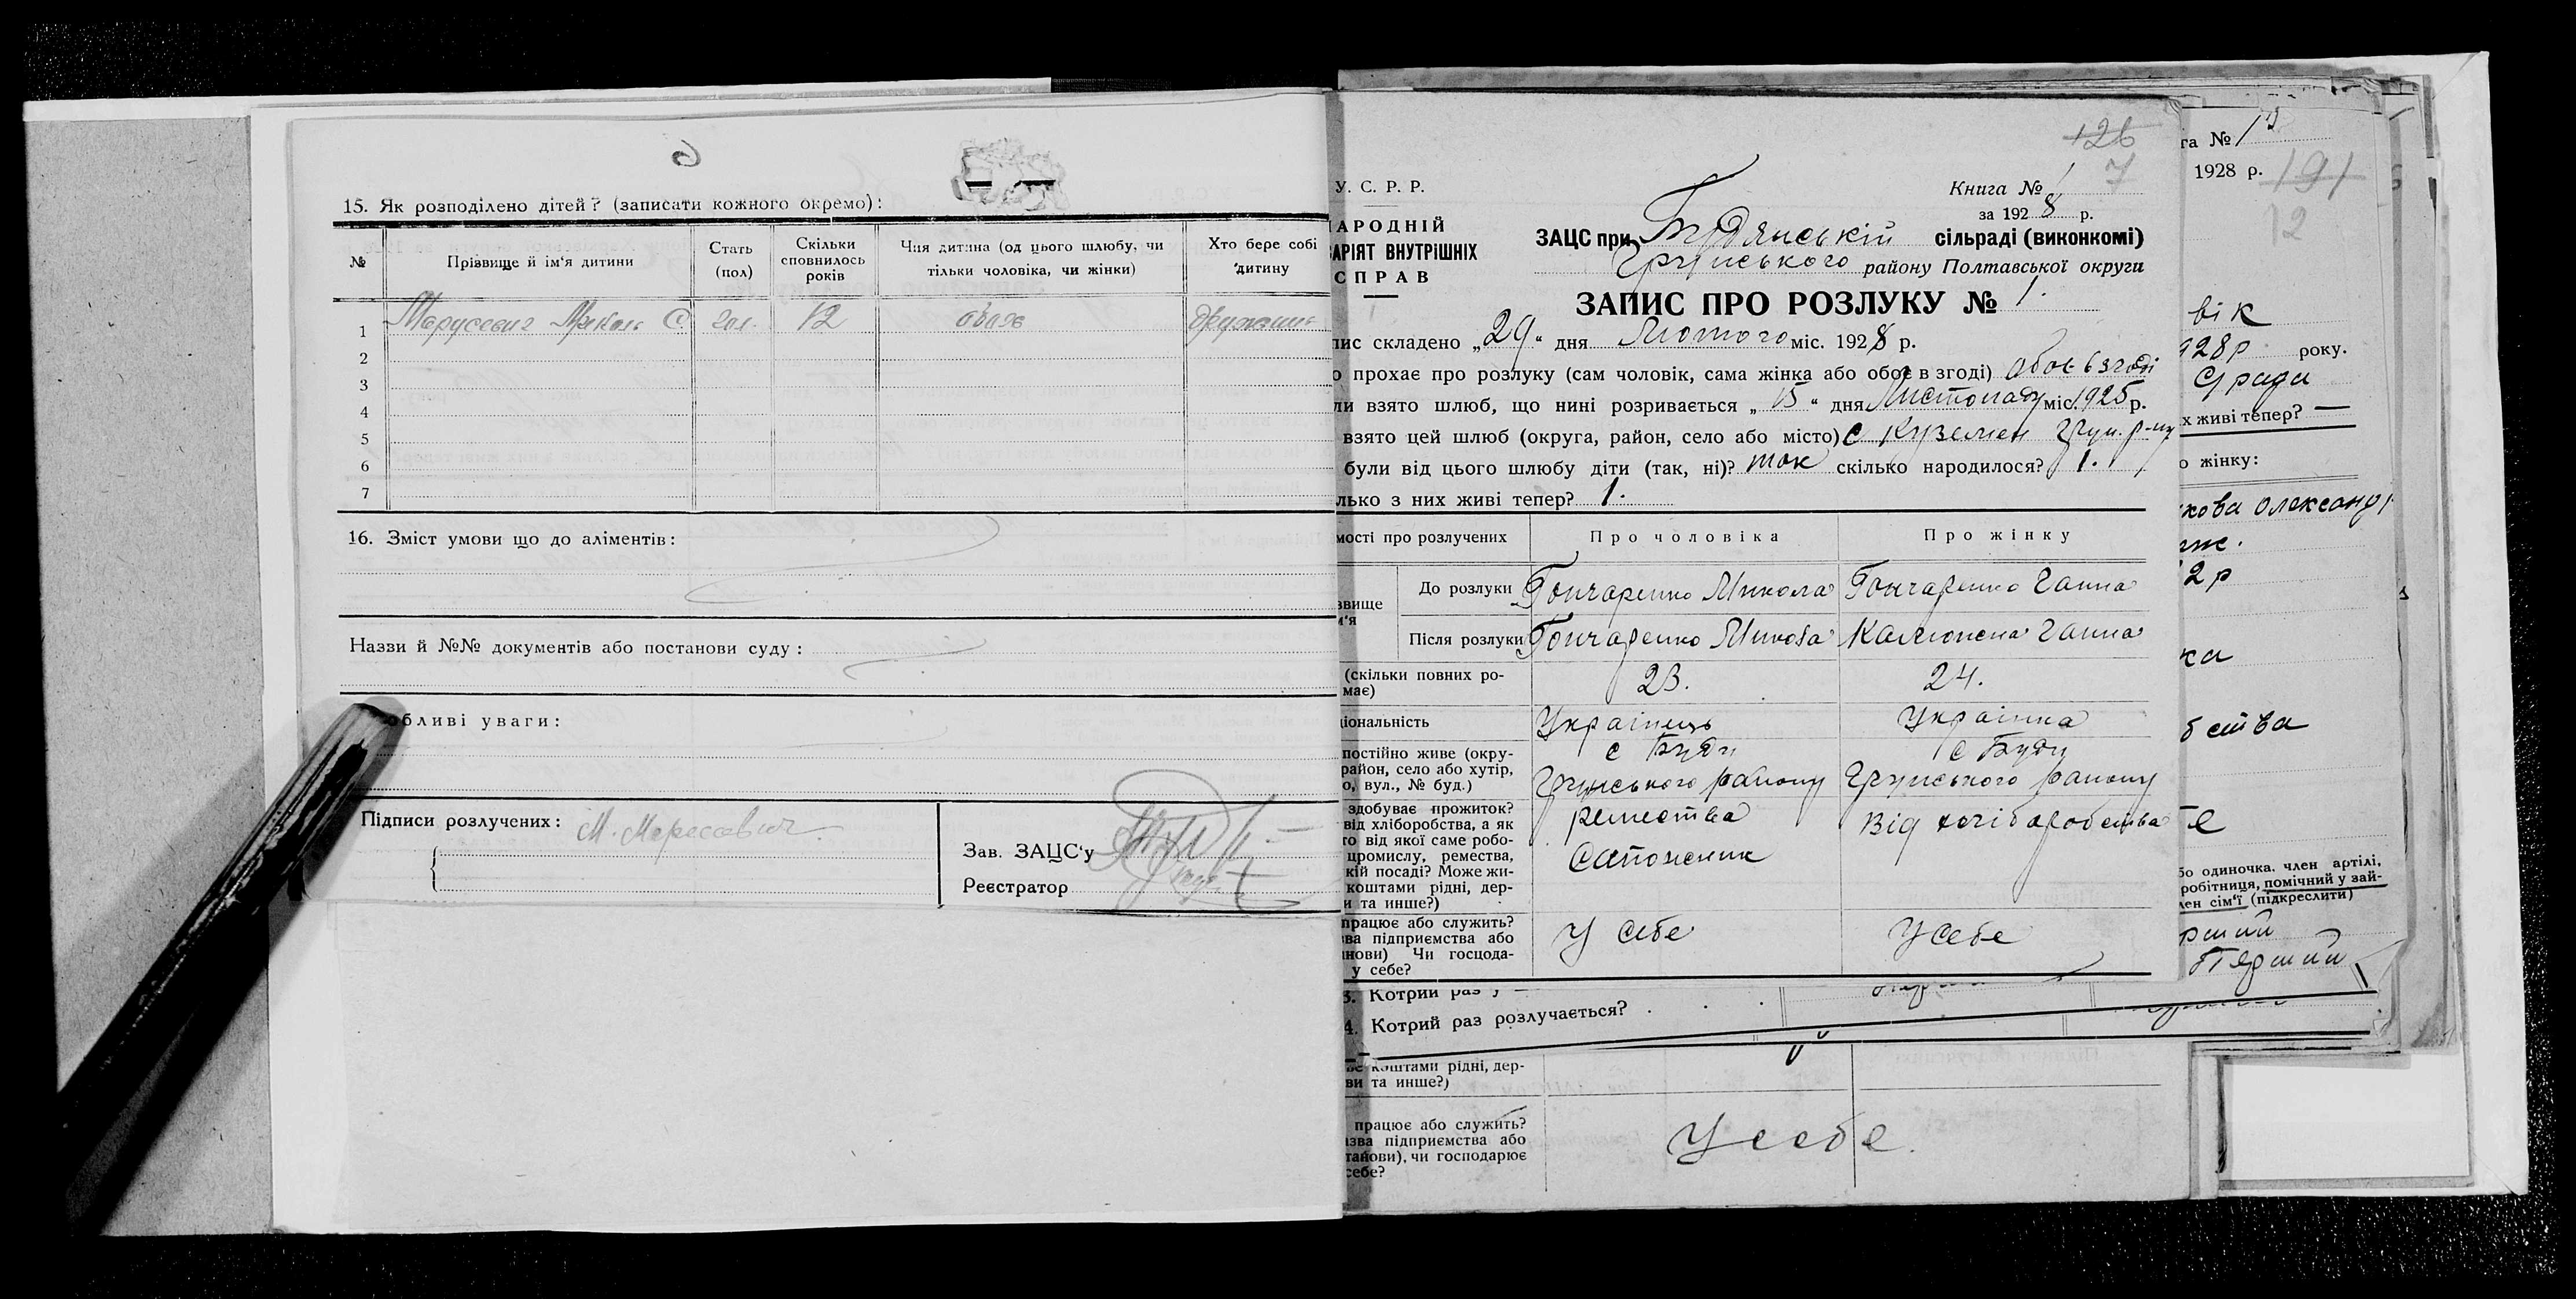 15. Як розподілено дітей? (записати кожного окремо):
№
Прізвище й ім'я дитини
Стать (пол)
Скільки сповнилось років
Чия дитина (од цього шлюбу, чи тільки чоловіка, чи жінки)
Хто бере собі дитину
1 Марусевич С 12
2
3
4
5
6
7
16. Зміст умови що до аліментів:
Назви й №№ документів або постанови суду:
бливі уваги:
Підписи розлучених:
Зав. ЗАЦС'у
Реєстратор
126
7
У. С. Р. Р.
Книга № 1
за 1928 р.
АРОДНІЙ
АРІЯТ ВНУТРІШНІХ
СПРАВ
ЗАЦС при Будянській сільраді (виконкомі)
Грунського району Полтавської округи
ЗАПИС ПРО РОЗЛУКУ № 1.
ис складено „29" дня Лютого міс. 1928 р.
о прохає про розлуку (сам чоловік, сама жінка або обоє в згоді) обоє в згоді
ли взято шлюб, що нині розривається „15" дня Листопаду міс. 1925 р.
взято цей шлюб (округа, район, село або місто) с Куземен Грун. р-ну
були від цього шлюбу діти (так, ні)? так скілько народилося? 1.
лько з них живі тепер? 1.
мості про розлучених
Про чоловіка
Про жінку
звище
м'я
До розлуки Гончаренко Микола Гончаренко Ганна
Після розлуки Гончаренко Микола Ганна
(скільки повних ро-
має)
23. 24.
ціональність Українець Українка
постійно живе (окру-
район, село або хутір,
о, вул., № буд.)
с Буди с Буди
Грунського району Грунського району
здобуває прожиток?
від хліборобства, а як
то від якої саме робо-
промислу, ремества,
кій посаді? Може жи-
коштами рідні, дер-
и та инше?)
ремества Від хліборобства
Сапожник
працює або служить?
ва підприємства або
нови) Чи господа-
у себе?
У себе У себе
3. Котрий раз
4. Котрий раз розлучається?
коштами рідні, дер-
ви та инше?)
працює або служить?
зва підприємства або
танови), чи господарює
себе?
У себе.
га № 13
1928 р.
191
12
вік
928р року.
х живі тепер? —
о жінку:
кова Олександ
2р
ка
бства
бо одиночка, член артілі,
робітниця, помічний у зай-
лен сім'ї (підкреслити)
рший
Перший